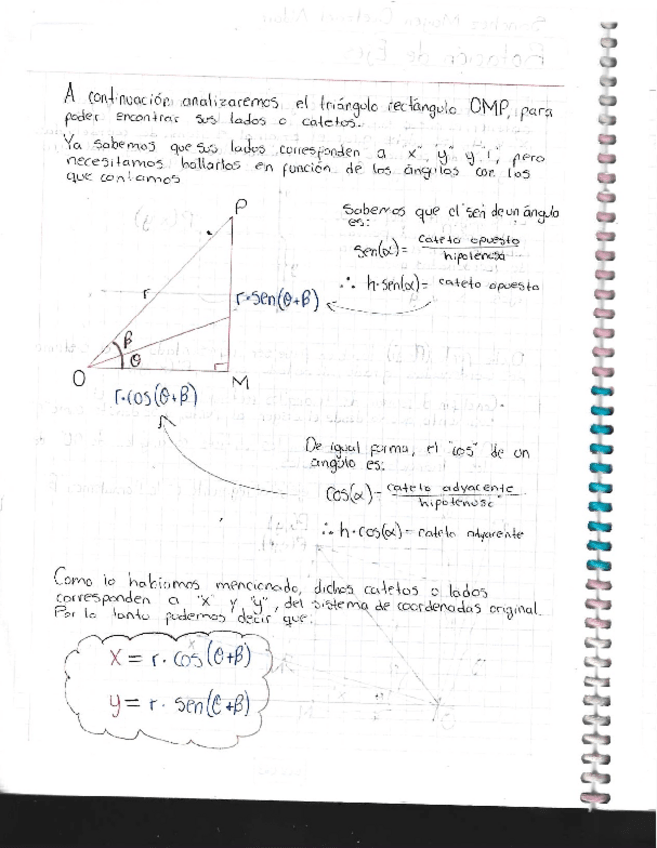 A continuación analizaremos el triángulo rectángulo OMP, para
poder encontrar sus lados o catetos.
Ya sabemos que sus lados corresponden a "x" "y" y "r", pero
necesitamos hallarlos en función de los ángulos con los
que contamos
Sabemos que el sen de un ángulo
es:
sen(α)= cateto opuesto
hipotenusa
∴ h·sen(α)= cateto opuesto
P
r
r·sen(θ+β)
β
θ
O
M
r·cos(θ+β)
De igual forma, el "cos" de un
angulo es:
cos(α)= cateto adyacente
hipotenusa
∴ h·cos(α)= cateto adyacente
Como lo habiamos mencionado, dichos catetos o lados
corresponden a "x" y "y", del sistema de coordenadas original.
Por lo tanto podemos decir que:
X = r. cos(θ+β)
y = r. sen(θ+β)